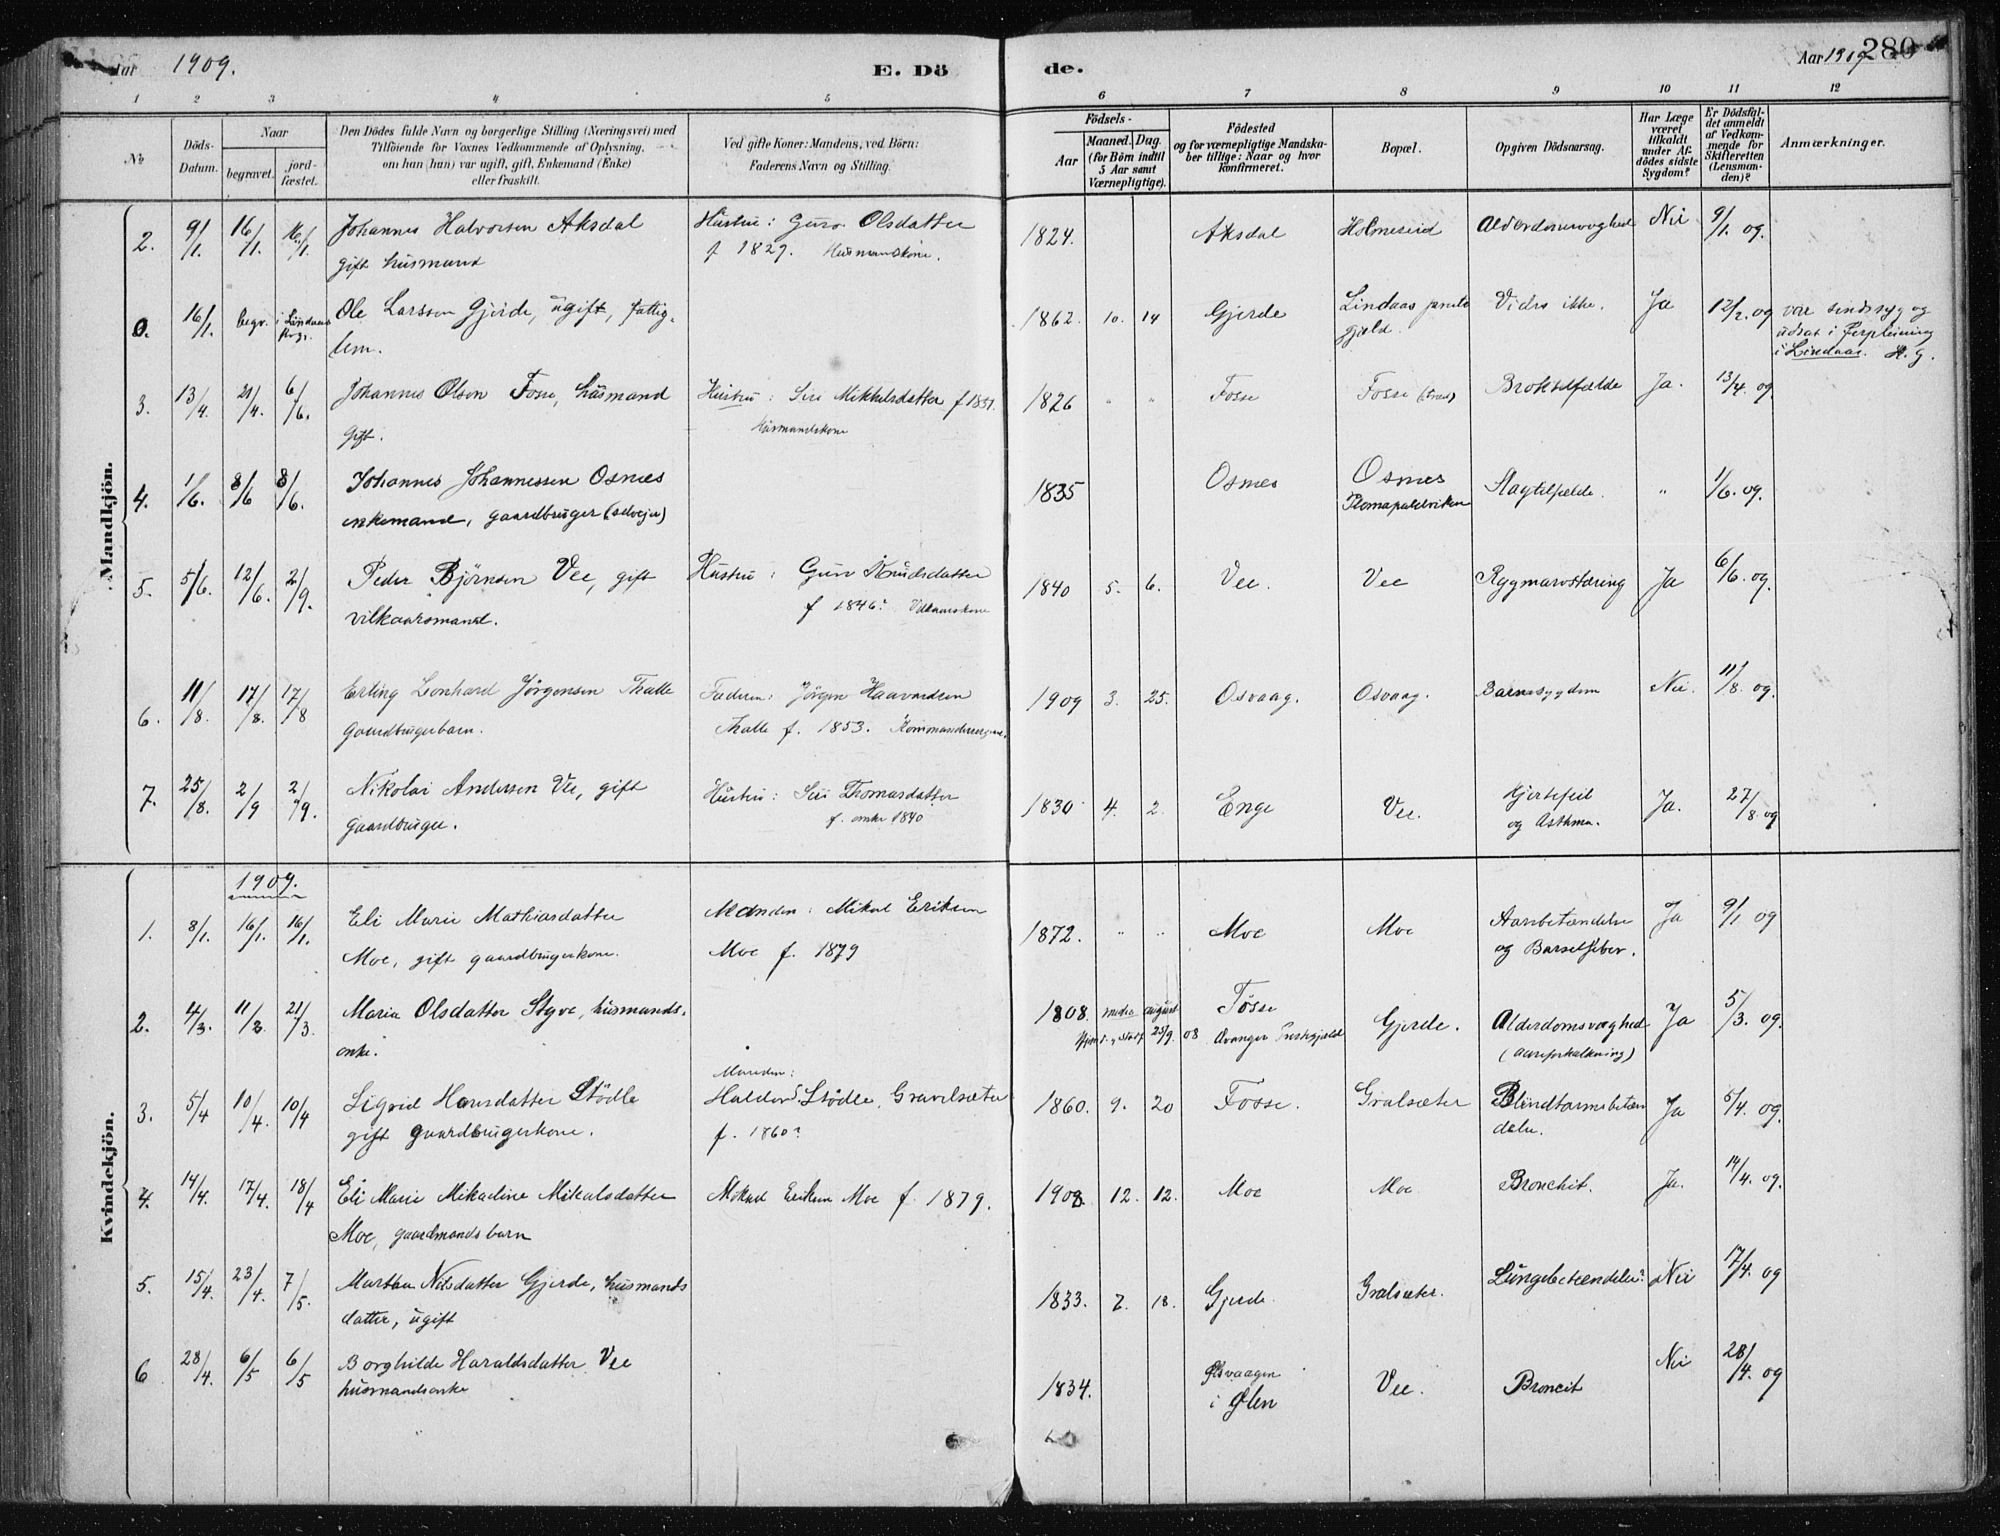 Aar 1909.
E. Dö
de.
Aar 1909
280
1 2 3 4 5 6 7 8 9 10 11 12
No
Döds-Datum.
Naar
begravet.
jord-fæstet.
Den Dödes fulde Navn og borgerlige Stilling (Næringsvei) med
Tilföiende for Voxnes Vedkommende af Oplysning,
om han (hun) var ugift, gift, Enkemand (Enke)
eller fraskilt.
Ved gifte Koner: Mandens, ved Börn:
Faderens Navn og Stilling.
Födsels-
Aar
Maaned. Dag.
(for Börn indtil
5 Aar samt
Værnepligtige).
Födested
og for værnepligtige Mandska-
ber tillige: Naar og hvor
konfirmeret.
Bopæl.
Opgiven Dödsaarsag.
Har Læge
været
tilkaldt
under Af-
dödes sidste
Sygdom?
Er Dödsfal-
det anmeldt
af Vedkom-
mende for
Skifteretten
(Lensman-
den)?
Anmærkninger.
Mandkjön.
2. 9/1. 16/1. 16/1. Johannes Halvorsen Aksdal Hustru: Guro Olsdatter 1824. Aksdal Holmeseid Alderdomsvaghed Nei 9/1. og.
gift husmand f 1829. Husmandskone.
0. 16/1. begr. i Lindaas Ole Larsson Gjerde, ugift, fattig- 1862. 10. 14 Gjerde Lindaas præste Vides ikke. Ja 12/2. og var sindssyg og
lem. gjeld. udsat i Forpleining
i Lindaas. H. G.
3. 13/4. 21/4. 6/6. Johannes Olsen Fosse, husmand Hustru: Siri Mikkelsdatter f 1831. 1826 " " Fosse Fosse Broktilfælde Ja. 13/4. og
gift. Husmandskone
4. 1/6. 8/6 8/6. Johannes Johannessen Osnes 1835 Osnes Osnes Slagtilfælde. " 1/6. og.
enkemand, gaardbruger (selvejer)
5. 5/6. 12/6. 2/9. Peder Björnsen Vee, gift Hustru: Guro Knudsdatter 1840 5. 6. Vee. Vee Rygmarvstæring Ja 6/6. og.
vilkaarsmand. f 1846?
6. 11/8. 17/8. 17/8 Erling Leonhard Jörgensen Thalle Faderen: Jörgen Haavardsen 1909 3. 25. Osvaag. Osvaag. Barnesygdom Nei. 11/8. og.
gaardbrugerbarn. Thalle f. 1853.
7. 25/8. 2/9 2/9. Nikolai Andersen Vee, gift Hustru: Siri Thomasdatter 1830 4. 2. Enge Vee. Hjertefeil Ja. 27/8. og
gaardbruger. f. omkr 1840 og Asthma.
Kvindekjön.
1909.
1. 8/1. 16/1. 16/1. Eli Marie Mathiasdatter Manden: Mikal Eriksen 1872. " " Moe Moe Aarebetændelse Ja 9/1 og
Moe, gift gaardbrugerkone. Moe f. 1879 og Barselfeber.
2. 4/3. 11/3. 21/3 Maria Olsdatter Styve, husmands- 1808. media august Fosse Gjerde. Alderdomsvaghed Ja 5/3. og.
enke. 25/9. 08 (aareforkalkning)
3. 5/4 10/4. 10/4 Sigrid Hansdatter Stödle Manden: Haldor S. Stödle, Gravelsæter 1860. 9. 20 Fosse. Gralsæter Blindtarmsbetæn Ja 5/4. og
gift gaardbrugerkone. f. 1860? delse.
4. 14/4. 17/4. 18/4 Eli Marie Mikaeline Mikalsdatter Mikal Eriksen Moe f. 1879. 1908. 12. 12. Moe Moe Bronchit. Ja. 14/4. og.
Moe, gaardmandsbarn
5. 15/4. 23/4. 7/5. Martha Nilsdatter Gjerde, husmands 1833. 7. 18. Gjerde. Gralsæter. Lungebetændelse? Nei 17/4. og
datter, ugift
6 28/4. 6/5 6/5 Borghilde Haraldsdatter Vee 1834. Ølsvaagen Vee. Broncit Nei 28/4. og
husmandsenke i Ølen